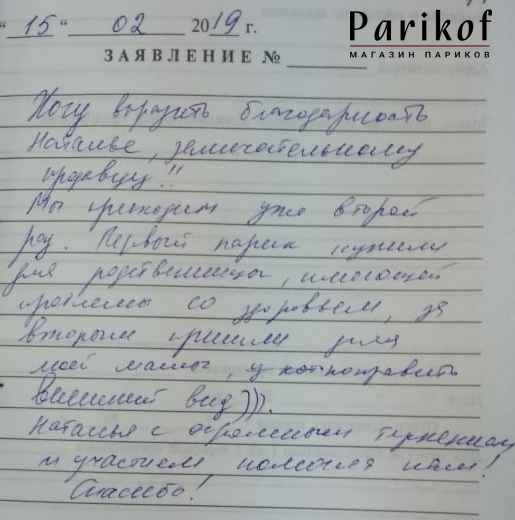 "15" 02 2019 г.
Parikof
МАГАЗИН ПАРИКОВ
ЗАЯВЛЕНИЕ №
Хочу выразить благодарность
Наталье, замечательному
продавцу!!
Мы приходим уже второй
раз. Первый парик купили
для родственницы, имеющей
проблемы со здоровьем, за
вторым пришли для
моей мамы, поправить
внешний вид))).
Наталья с огромным терпением
и участием помогла нам!
Спасибо!